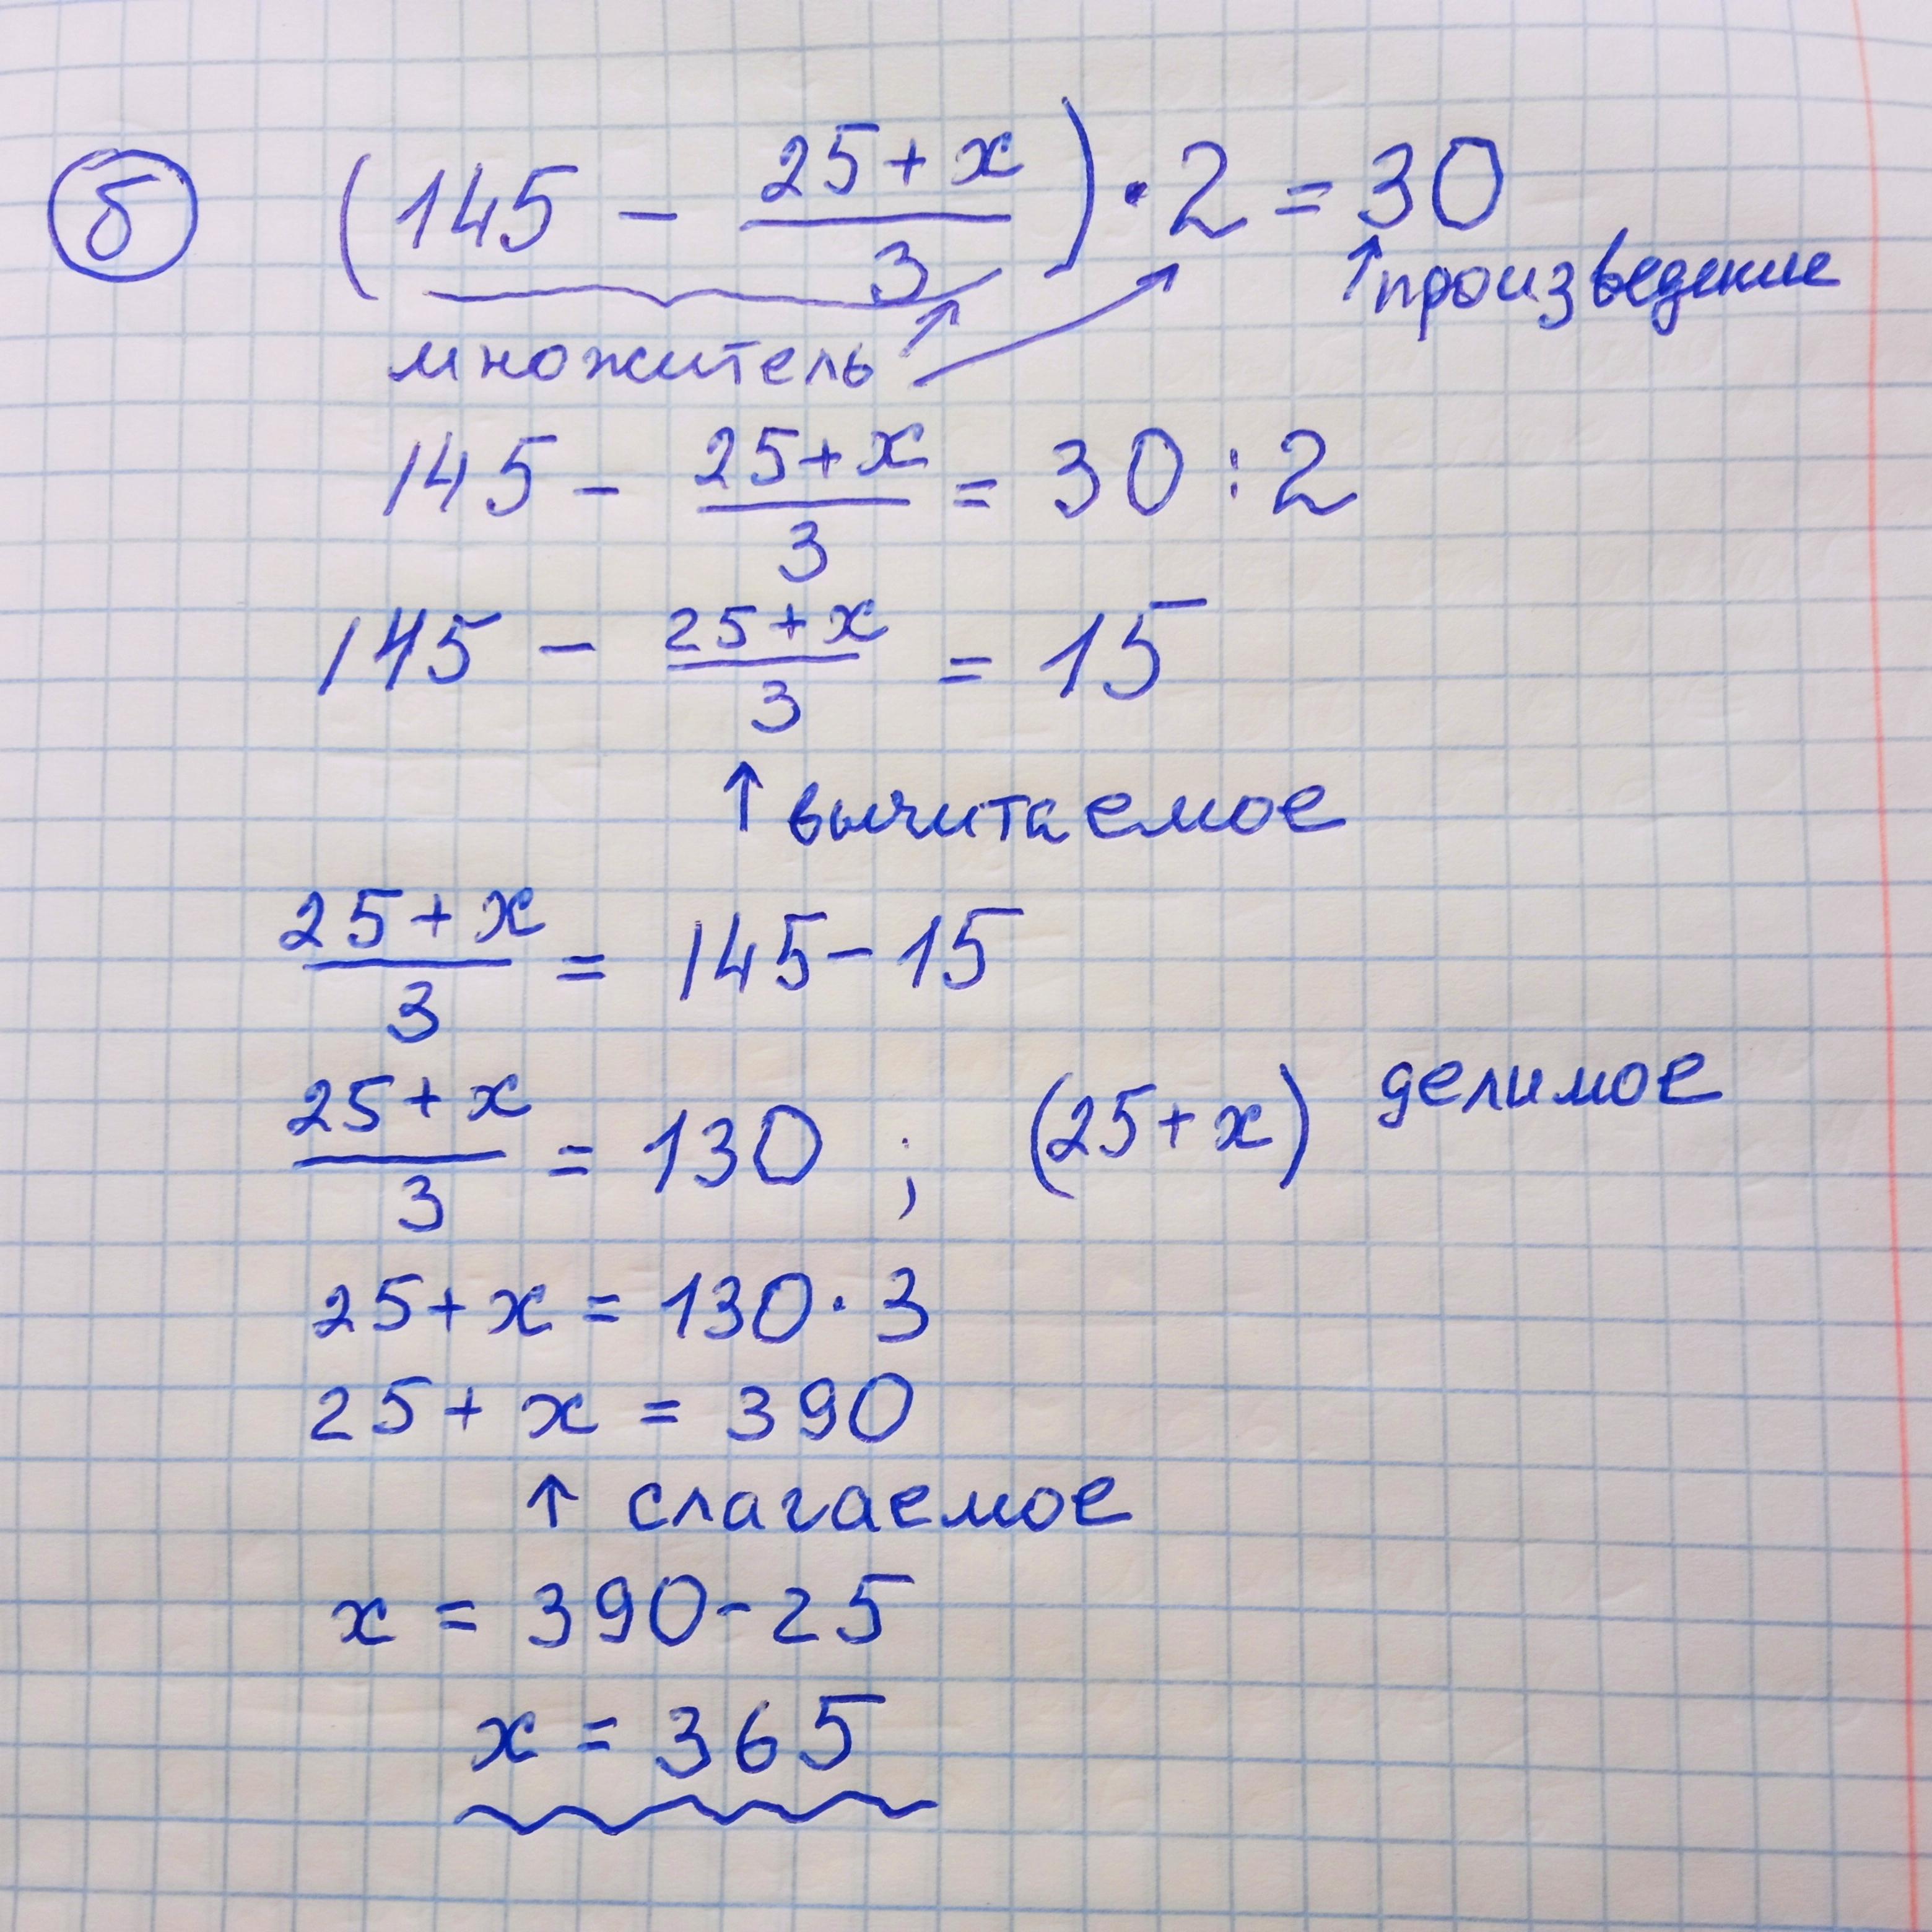 б (145 - \frac{25+x}{3}) · 2 = 30
↑ произведение
множитель
145 - \frac{25+x}{3} = 30 : 2
145 - \frac{25+x}{3} = 15
↑ вычитаемое
\frac{25+x}{3} = 145 - 15
\frac{25+x}{3} = 130 ; (25+x) делимое
25+x = 130 · 3
25+x = 390
↑ слагаемое
x = 390 - 25
x = 365